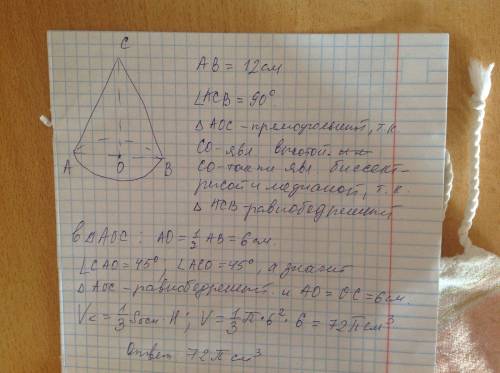 C
A O B
AB = 12 см
∠ACB = 90°
△AOC - прямоугольный, т.к.
CO - явл высотой.
CO - также явл биссект-
рисой и медианой, т.к.
△ACB - равнобедренный
В △AOC: AO = 1/2 AB = 6 см.
∠CAO = 45°, ∠ACO = 45°, а значит
△AOC - равнобедренный и AO = OC = 6 см.
Vк = 1/3 Sосн · H; V = 1/3 π · 6² · 6 = 72π см³
Ответ 72π см³